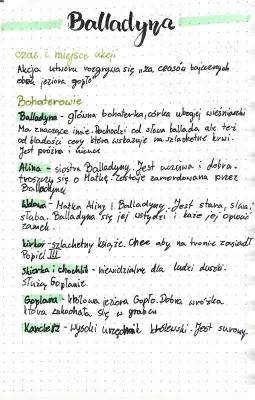 Balladyna
czas i miejsce akcji
Akcja utworu rozgrywa się n za czasów bajecznych
obok jeziora gopło
Bohaterowie
Balladyna - główna bohaterka, córka ubogiej wieśniaczki
Ma znaczące imię. Pochodzi od słowa ballada ale też
od bladości cery która wskazuje na szlachetne krwi.
Jest próżna i
Alina - siostra Balladyny. Jest uczciwa i dobra.
troszczy się o Matkę. Zostaje zamordowana przez
Balladynę
Wdowa - Matka Aliny i Balladyny. Jest stara,
słaba. Balladyna się jej wstydzi i każe jej opuścić
zamek.
Kirkor - szlachetny książe. Chce aby na tronie zasiadł
Popiel III
Skierka i chochlik - niewidzialne dla ludzi duszki.
służą Goplanie
Goplana - królowa jeziora Gopło. Dobra wróżka
która zakochała się w grabcu
Kanclerz - wysoki urzędnik królewski. Jest surowy.